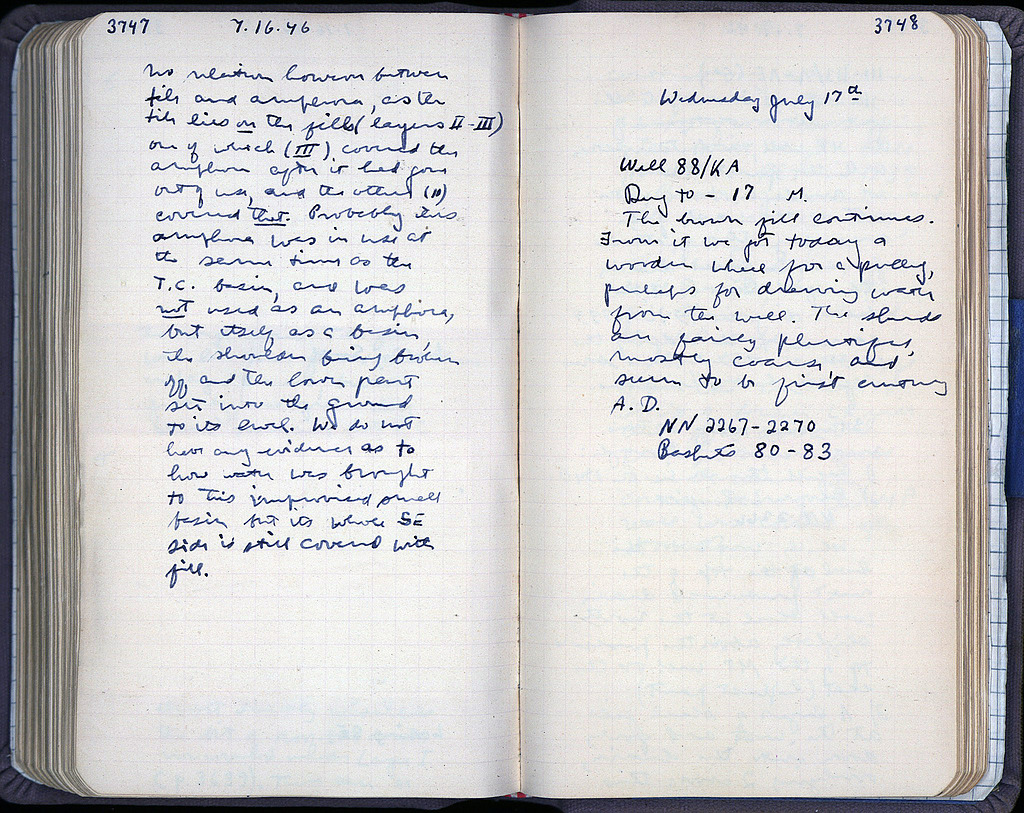 3747 7.16.46
no relation however between
tile and amphora, as the
tile lies on the fills (layers II-III)
one of which (III) covered the
amphora after it had gone
out of use, and the other (II)
covered that. Probably this
amphora was in use at
the same time as the
T.C. basin, and was
not used as an amphora,
but itself as a basin,
the shoulder being broken
off and the lower part
set into the ground
to its level. We do not
have any evidence as to
how water was brought
to this improvised small
basin but its whole SE
side is still covered with
fill.
3748
Wednesday July 17th
Well 88/KA
Dug to - 17 M.
The brown fill continues.
From it we got today a
wooden wheel for a pulley,
perhaps for drawing water
from the well. The sherds
are fairly plentiful,
mostly coarse, and
seem to be first century
A.D.
NN 2267-2270
Baskets 80-83